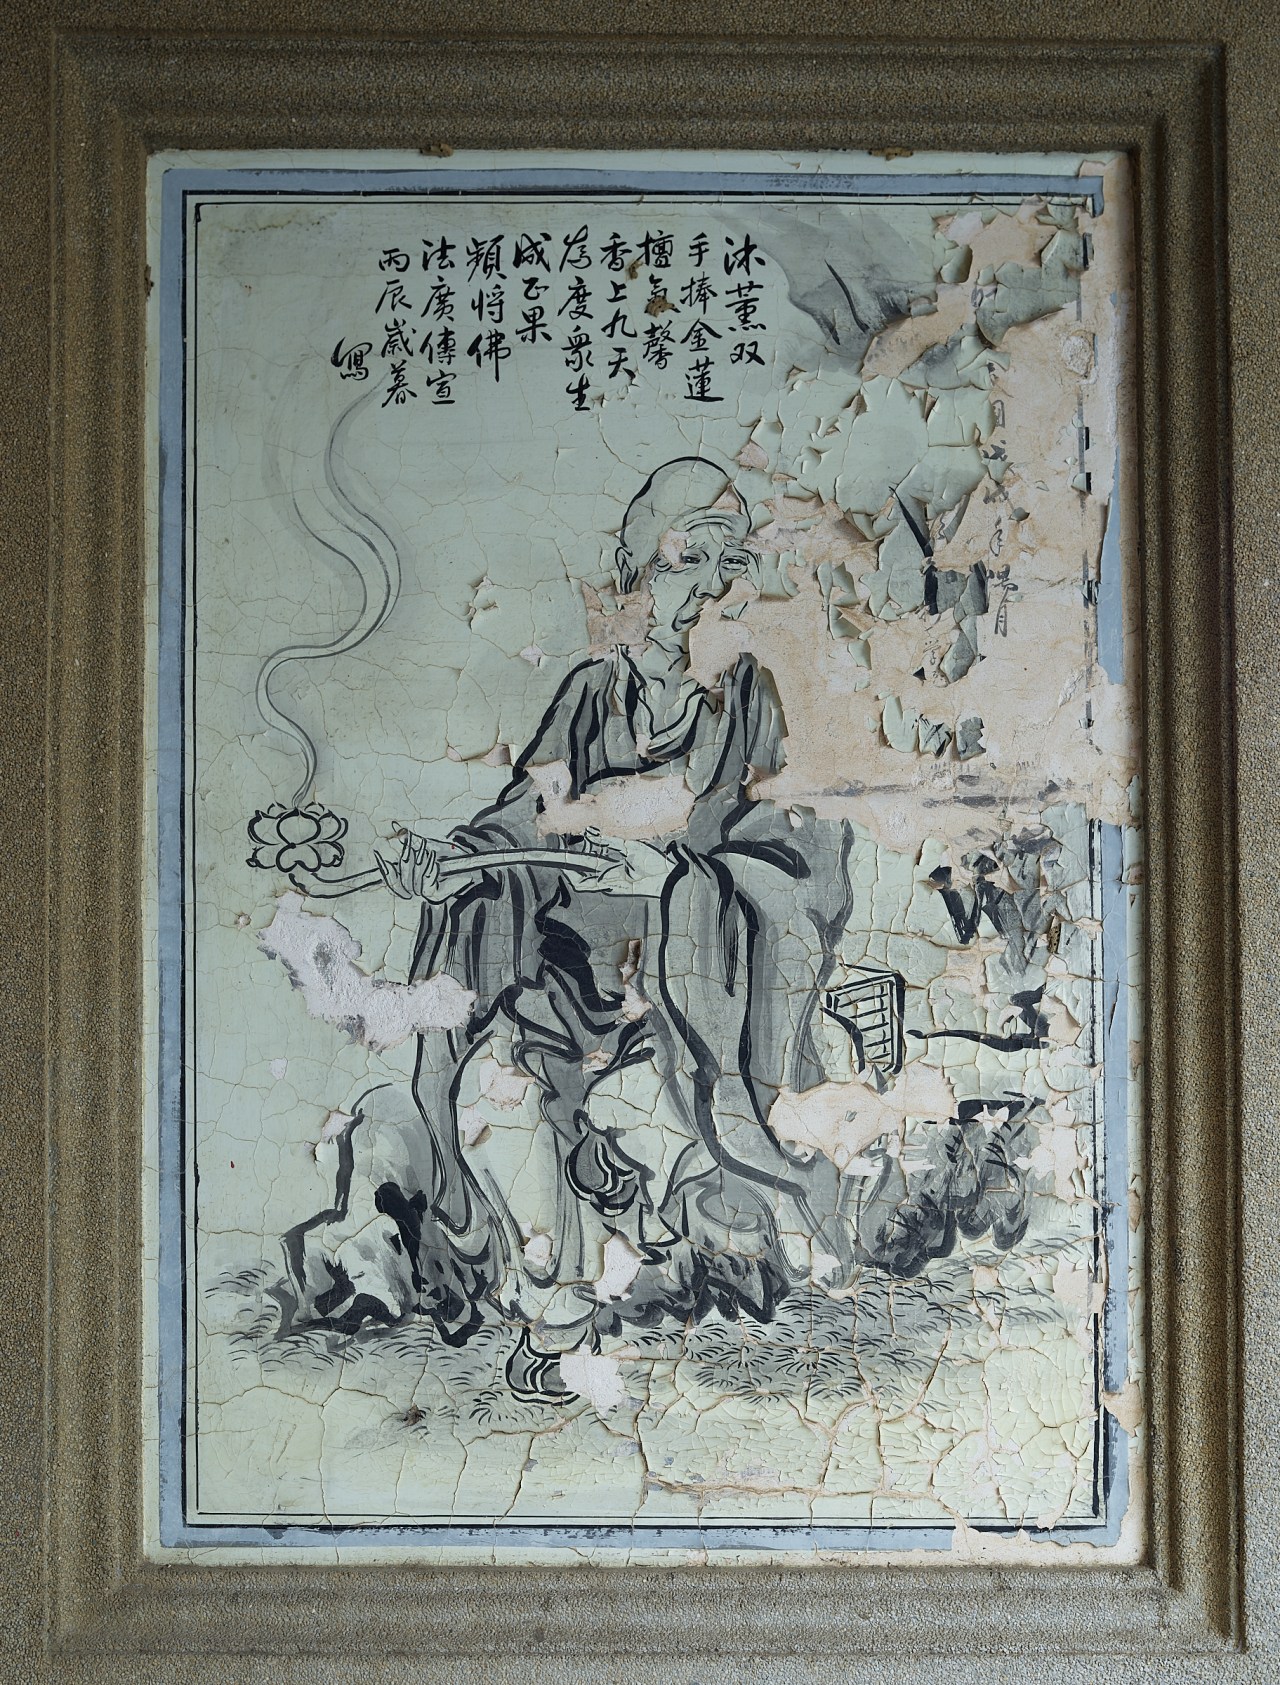 沐薰双
手捧金蓮
檀氣馨
香上九天
為度衆生
成正果
頻將佛
法廣傳宣
丙辰歲暮
寫
月戊戌年